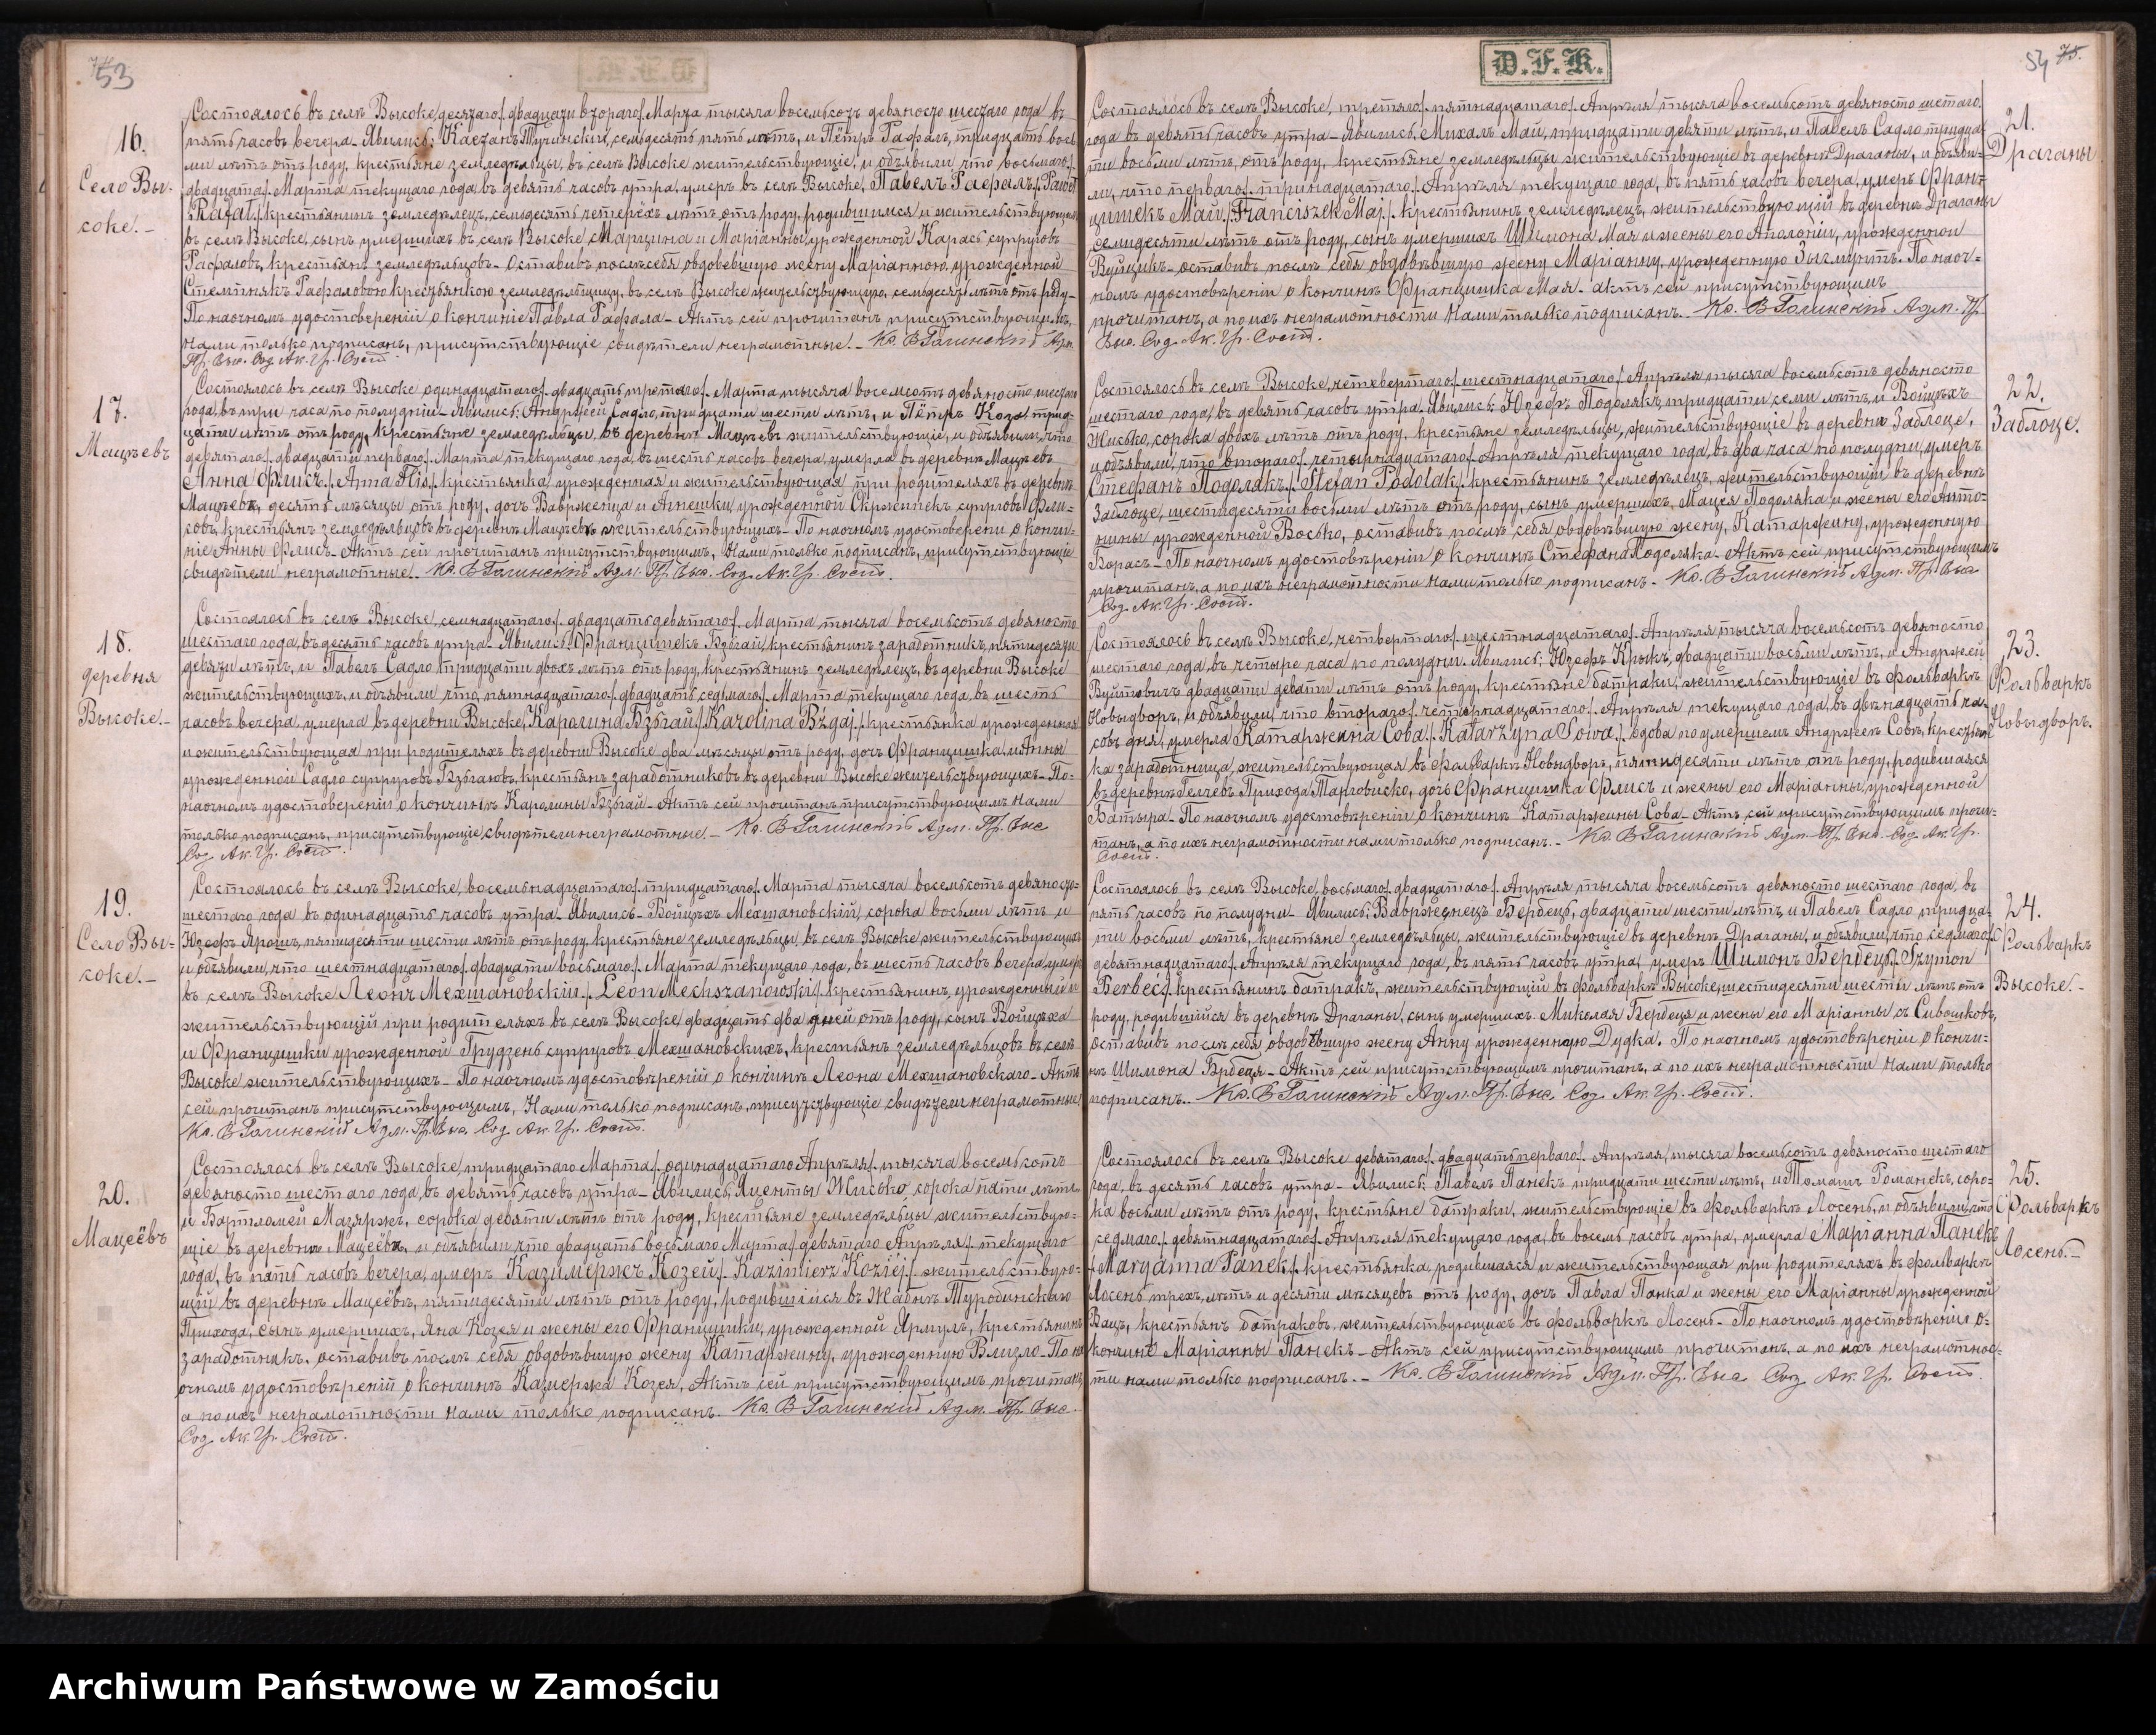 53
16.
Село Вы-
соке.-
Состоялось въ селѣ Высоке, десятаго /двадцати втораго/ Марта тысяча восемьсотъ девяносто шестаго года въ
пять часовъ вечера - Явились: Каетанъ Тучинскій, семьдесять пять лѣтъ, и Пётръ Рафалъ, тридцать вось
ми лѣтъ отъ роду, крестьяне земледѣльцы, въ селѣ Высоке жительствующіе, и объявили что восьмаго /
двадцатаго/ Марта текущаго года, въ девять часовъ утра, умеръ въ селѣ Высоке, Павелъ Рафалъ /Paweł
Rafał/ крестьянинъ земледѣлецъ, семьдесятъ четерёхъ лѣтъ отъ роду, родившимся и жительствующемъ
въ селѣ Высоке, сынъ умершихъ въ селѣ Высоке Марцина и Маріанны урожденной Карась супруговъ
Рафаловъ, крестьянъ земледѣльцовъ - Оставивъ послѣ себя овдовевшую жену Маріанною, урожденной
Рафаловою крестьянкою земледѣльщицу, въ селѣ Высоке жительствующую, семьдесятъ лѣтъ отъ роду -
По наочномъ удостовереніи о кончинѣ Павла Рафала - Актъ сей прочитанъ присутствующимъ,
Нами только подписанъ, присутствующіе свидѣтели неграмотные. - Кс. В Гагинскій Адм.
Пр. Выс. Сод. Ак. Гр. Сост.
17.
Мацѣевъ
Состоялось въ селѣ Высоке одинадцатаго /двадцать третяго/ Марта тысяча восемьсотъ девяносто шестаго
года, въ три часа по полудніи - Явились: Андржей Садло, тридцати шести лѣтъ, и Пётръ Коза, трид-
цати лѣтъ отъ роду, крестьяне земледѣльцы, въ деревни Мацѣевъ жительствующіе, и объявили, что
девятаго /двадцати перваго/ Марта текущаго года, въ шесть часовъ вечера, умерла въ деревнѣ Мацѣевъ
Анна Флисъ /Anna Flis/ крестьянка, урожденная и жительствующая при родителяхъ въ деревнѣ
Мацѣевъ, десять мѣсяцы отъ роду, дочь Вавржеица и Агнешки урожденной супруговъ Фли-
совъ, крестьянъ земледѣльцовъ въ деревнѣ Мацѣевъ жительствующихъ - По наочномъ удостоверени о кончи-
ніе Анны Флисъ - Актъ сей прочитанъ присутствующимъ, Нами только подписанъ, присутствующіе
свидѣтели неграмотные. Кс. В Гагинскій Адм. Пр. Выс. Сод. Ак. Гр. Сост.
18.
деревня
Высоке.-
Состоялось въ селѣ Высоке, семнадцатаго /двадцать девятаго/ Марта тысяча восемьсотъ девяносто
шестаго года, въ десять часовъ утра - Явились: Францишекъ Бзгай, крестьянинъ заработникъ, пятидесяти
девяти лѣтъ, и Павелъ Садло, тридцати двохъ лѣтъ отъ роду, крестьянинъ земледѣлецъ, въ деревни Высоке
жительствующихъ, и объявили что, пятнадцатаго /двадцать седмаго/ Марта текущаго года, въ шесть
часовъ вечера, умерла въ деревни Высоке, Каролина Бзгай /Karolina Bzgaj/ крестьянка урожденная
и жительствующая при родителяхъ въ деревни Высоке, два мѣсяцы отъ роду, дочь Францишка и Анны
урожденной Садло супруговъ Бзгаювъ, крестьянъ заработниковъ въ деревни Высоке жительствующихъ - По-
наочномъ удостовереніи о кончинѣ Каролины Бзгай - Актъ сей прочитанъ присутствующимъ Нами
только подписанъ, присутствующіе, свидѣтели неграмотные. - Кс. В Гагинскій Адм. Пр. Выс
Сод. Ак. Гр. Сост.
19.
Село Вы-
соке.-
Состоялось въ селѣ Высоке, восемьнадцатаго /тридцатаго/ Марта тысяча восемьсотъ девяносто-
шестаго года въ одинадцать часовъ утра - Явились - Войцѣхъ Мехшановскій, сорока восьми лѣтъ и
Юзефъ Ярошъ, пятидесяти шести лѣтъ отъ роду, крестьяне земледѣльцы, въ селѣ Высоке жительствующихъ
и объявили, что шестнадцатаго /двадцати восьмаго/ Марта текущаго года, въ шесть часовъ вечера, умеръ
въ селѣ Высоке Леонъ Мехшановскій /Leon Mechszanowski/ крестьянинъ, урожденный и
жительствующій при родителяхъ въ селѣ Высоке двадцать два дней отъ роду, сынъ Войцѣха
и Францишки урожденной Грудзень супруговъ Мехшановскихъ, крестьянъ земледѣльцовъ въ селѣ
Высоке жительствующихъ - По наочномъ удостовѣреній о кончинѣ Леона Мехшановскаго - Актъ
сей прочитанъ присутствующимъ, Нами только подписанъ, присутствующіе свидѣтели неграмотные
Кс. В Гагинскій Адм. Пр. Выс. Сод. Ак. Гр. Сост.
20.
Мацеёвъ
Состоялось въ селѣ Высоке, тридцатаго Марта /одинадцатаго Апрѣля/ тысяча восемьсотъ
девяносто шестаго года, въ девять часовъ утра - Явились, Яценты Жисько, сорока пяти лѣтъ
и Бартломей Мазяржъ, сорока девяти лѣтъ отъ роду, крестьяне земледѣльцы жительствую-
щіе въ деревнѣ Мацеёвѣ, и объявили что двадцать восьмаго Марта /девятаго Апрѣля/ текущаго
года, въ пять часовъ вечера, умеръ Казимержъ Козей /Kazimierz Koziej/ жительствую-
щій въ деревнѣ Мацеёвъ, пятидесяти лѣтъ отъ роду, родившійся въ Жабнѣ Туробинскаго
Прихода, сынъ умершихъ, Яна Козея и жены его Францишки, урожденной Ярмулъ, крестьянинъ
заработникъ, оставивъ послѣ себя овдовѣвшую жену Катаржину, урожденную Влизло - По на
очномъ удостовѣреній о кончинѣ Казмержа Козея, Актъ сей присутствующимъ прочитанъ
а по ихъ неграмотности нами только подписанъ. Кс. В Гагинскій Адм. Пр. Выс.
Сод. Ак. Гр. Сост.
D.F.K.
54 75.
21.
Драганы
Состоялось въ селѣ Высоке, третяго /пятнадцатаго/ Апрѣля тысяча восемьсотъ девяносто шестаго
года въ девять часовъ утра - Явились, Михалъ Май, тридцати девяти лѣтъ, и Павелъ Садло тридца-
ти восьми лѣтъ, отъ роду, крестьяне земледѣльцы жительствующіе въ деревнѣ Драганы, и объяви-
ли, что перваго /тринадцатаго/ Апрѣля текущаго года, въ пять часовъ вечера, умеръ Фран-
цишекъ Май /Franciszek Maj/ крестьянинъ земледѣлецъ, жительствующій въ деревнѣ Драганы
семидесяти лѣтъ отъ роду, сынъ умершихъ Шимона Мая и жены его Аполоніи, урожденной
Вуйцикъ - оставивъ послѣ себя овдовѣвшую жену Маріанну, урожденную Зыгмунтъ. По наоч-
номъ удостовѣреніи о кончинѣ Францишка Мая - актъ сей присутствующимъ
прочитанъ, а по ихъ неграмотности Нами только подписанъ. - Кс. В Гагинскій Адм. Пр.
Выс. Сод. Ак. Гр. Сост.
22.
Заблоце.
Состоялось въ селѣ Высоке, четвертаго /шестнадцатаго/ Апрѣля тысяча восемьсотъ девяносто
шестаго года, въ девять часовъ утра. Явились: Юзефъ Подолякъ, тридцати семи лѣтъ, и Войцѣхъ
Жисько, сорока двохъ лѣтъ отъ роду, крестьяне земледѣльцы, жительствующіе въ деревнѣ Заблоце,
и объявили, что втораго /четырнадцатаго/ Апрѣля текущаго года, въ два часа по полудни, умеръ
Стефанъ Подолякъ /Stefan Podolak/ крестьянинъ земледѣлецъ, жительствующій въ деревнѣ
Заблоце, шестидесяти восьми лѣтъ отъ роду, сынъ умершихъ, Мацея Подоляка и жены его Анто-
нины урожденной Восько, оставивъ послѣ себя овдовѣвшую жену, Катаржину, урожденную
Борасъ - По наочномъ удостовѣреніи о кончинѣ Стефана Подоляка - Актъ сей присутствующимъ
прочитанъ, а по ихъ неграмотности нами только подписанъ. - Кс. В Гагинскій Адм. Пр. Выс
Сод. Ак. Гр. Сост.
23.
Фольваркъ
Новыдворъ.
Состоялось въ селѣ Высоке, четвертаго /шестнадцатаго/ Апрѣля, тысяча восемьсотъ девяносто
шестаго года въ четыре часа по полудни. Явились: Юзефъ Крыкъ, двадцати восьми лѣтъ, и Андржей
Вуйтовичъ двадцати девяти лѣтъ отъ роду, крестьяне батраки, жительствующіе въ Фольваркѣ
Новыдворъ, и объявили, что втораго /четырнадцатаго/ Апрѣля текущаго года, въ двѣнадцать ча-
совъ дня, умерла Катаржина Сова /Katarzyna Sowa/ вдова по умершемъ Андржеѣ Совѣ, крестьян
ка заработница, жительствующая въ Фольваркѣ Новыдворъ, пятидесяти лѣтъ отъ роду, родившаяся
въ деревнѣ Гелчевъ Прихода Тарговиско, дочь Францишка Флисъ и жены его Маріанны, урожденной
Батыра - По наочномъ удостовѣреніи о кончинѣ Катаржины Сова - Актъ сей присутствующимъ прочи-
танъ, а по ихъ неграмотности нами только подписанъ. - Кс. В Гагинскій Адм. Пр. Выс. Сод. Ак. Гр.
Сост.
24.
Фольваркъ
Высоке.-
Состоялось въ селѣ Высоке, восьмаго /двадцатаго/ Апрѣля тысяча восемьсотъ девяносто шестаго года, въ
пять часовъ по полудни - Явились: Вавржеецъ Бербець, двадцати шести лѣтъ, и Павелъ Садло тридца-
ти восьми лѣтъ, крестьяне земледѣльцы, жительствующіе въ деревнѣ Драганы, и объявили, что седмаго /
девятнадцатаго/ Апрѣля текущаго года, въ пять часовъ утра, умеръ Шимонъ Бербець /Szymon
Berbeć/ крестьянинъ батракъ, жительствующій въ фольваркѣ Высоке, шестидесяти шести лѣтъ отъ
роду, родившійся въ деревнѣ Драганы, сынъ умершихъ Миколая Бербеця и жены его Маріанны съ Сивошковъ,
оставивъ послѣ себя овдовѣвшую жену Анну урожденную Дудка. По наочномъ удостовѣреніи о кончи-
нѣ Шимона Бербеця - Актъ сей присутствующимъ прочитанъ, а по ихъ неграмотности нами только
подписанъ. Кс. В Гагинскій Адм. Пр. Выс. Сод. Ак. Гр. Сост.
25.
Фольваркъ
Лосень.-
Состоялось въ селѣ Высоке девятаго /двадцать перваго/ Апрѣля, тысяча восемьсотъ девяносто шестаго
года, въ десять часовъ утра - Явились Павелъ Панекъ тридцати шести лѣтъ, и Томашъ Романекъ, соро-
ка восьми лѣтъ отъ роду, крестьяне батраки, жительствующіе въ Фольваркѣ Лосень, и объявили, что
седмаго /девятнадцатаго/ Апрѣля текущаго года, въ восемь часовъ утра, умерла Маріанна Панекъ
/Maryanna Panek/ крестьянка, родившаяся и жительствующая при родителяхъ въ фольваркѣ
Лосень, трехъ, лѣтъ и десяти мѣсяцевъ отъ роду, дочь Павла Панка и жены его Маріанны, урожденной
Вацъ, крестьянъ батраковъ, жительствующихъ въ фольваркѣ Лосень - По наочномъ удостовѣреніи о-
кончинѣ Маріанны Панекъ - Актъ сей присутствующимъ прочитанъ, а по ихъ неграмотнос-
ти нами только подписанъ. - Кс. В Гагинскій Адм. Пр. Выс Сод Ак. Гр. Сост.
Archiwum Państwowe w Zamościu